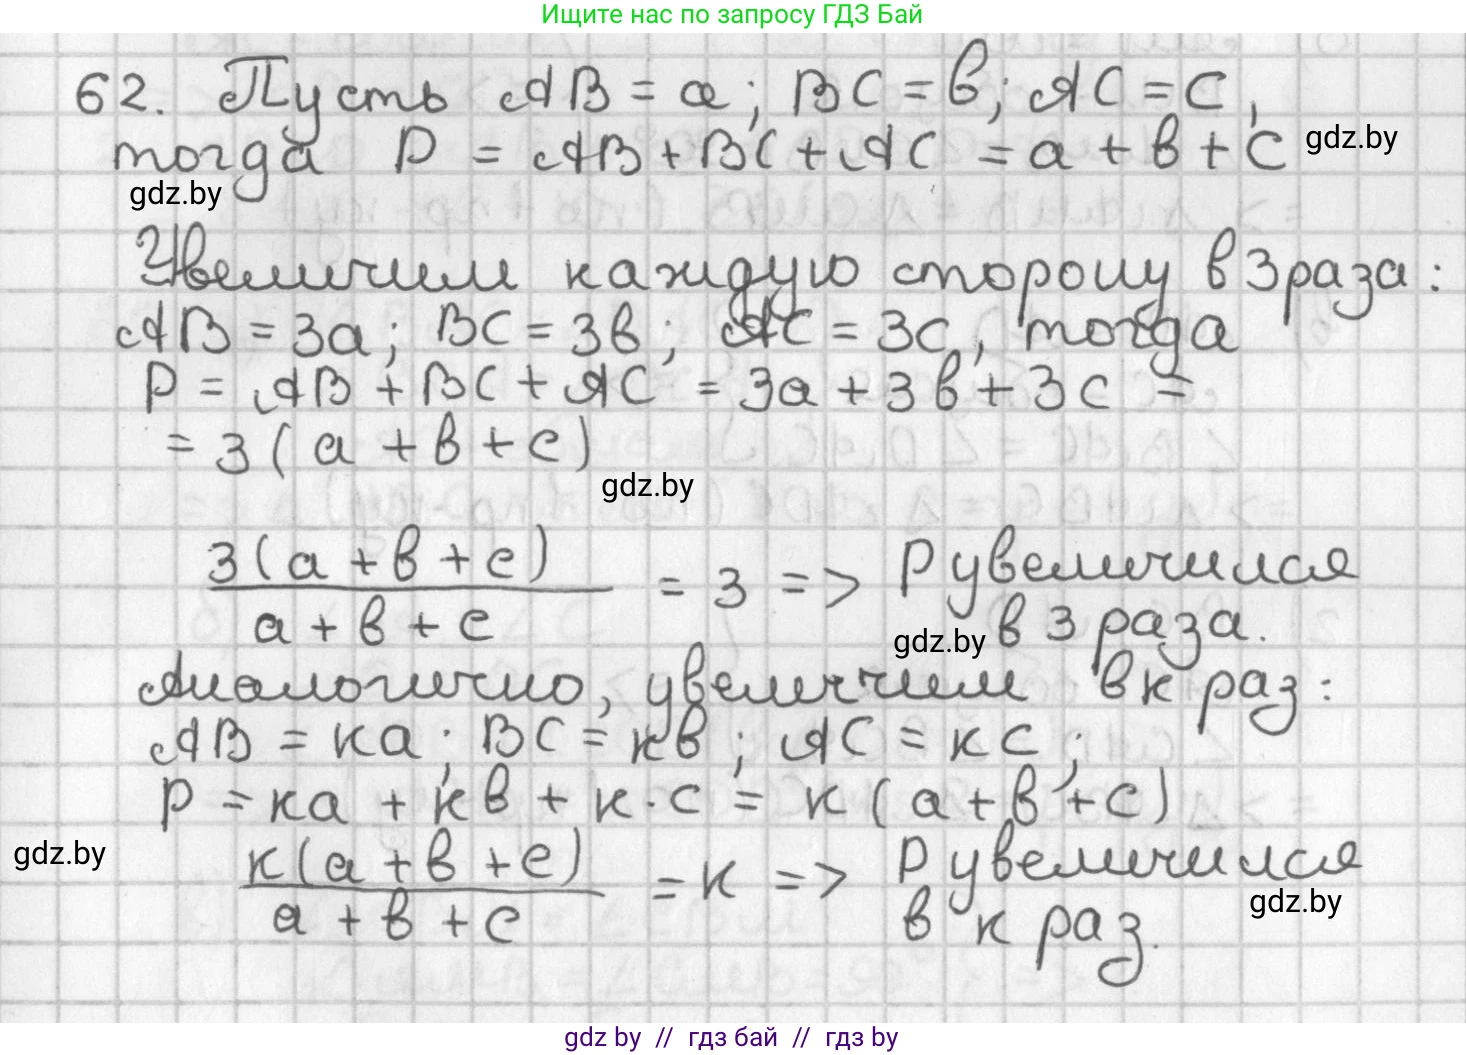 Ищите нас по запросу ГДЗ Бай
62. Пусть AB = a; BC = в; AC = c,
тогда P = AB + BC + AC = a + в + c
gdz.by
gdz.by
Увеличим каждую сторону в 3 раза:
AB = 3a; BC = 3в; AC = 3c, тогда
P = AB + BC + AC = 3a + 3в + 3c =
= 3(a + в + c)
gdz.by
3(a + в + c)
a + в + c
= 3 => P увеличился
в 3 раза.
gdz.by
Аналогично, увеличим в к раз:
AB = кa; BC = кв; AC = кc;
P = кa + кв + к·c = к(a + в + c)
gdz.by
к(a + в + c)
a + в + c
= к => P увеличился
в к раз.
gdz.by
gdz by // гдз бай // гдз by